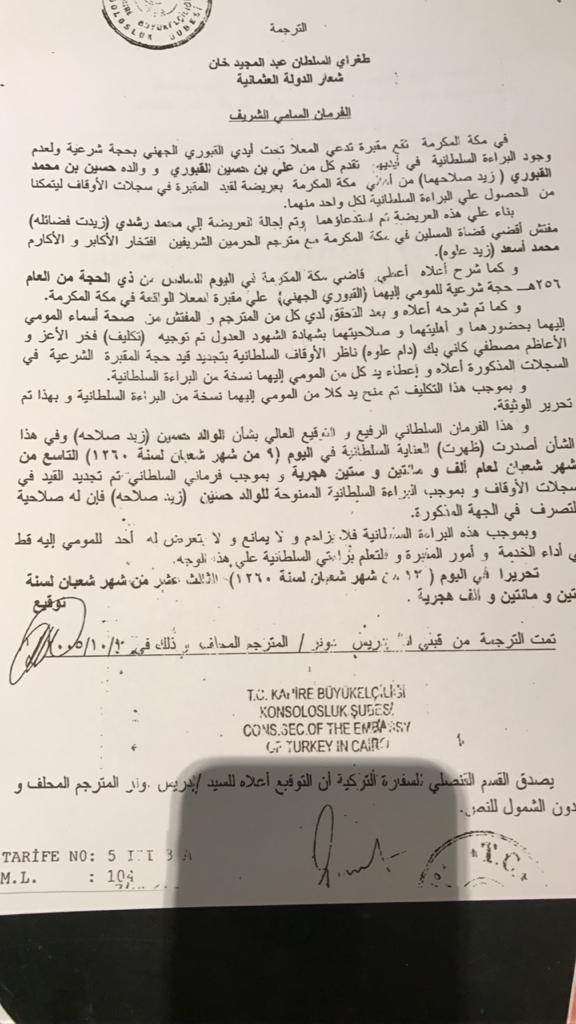 BÜYÜKELÇİLİĞİ
KONSOLOSLUK ŞUBESİ
الترجمة
طغراي السلطان عبد المجيد خان
شعار الدولة العثمانية
الفرمان السامي الشريف
في مكة المكرمة تقع مقبرة تدعي المعلا تحت ايدي القبوري الجهني بحجة شرعية ولعدم
وجود البراءة السلطانية في أيديهم تقدم كل من علي بن حسين القبوري و والده حسين بن محمد
القبوري ( زيد صلاحهما) من مكة المكرمة بعريضة لقيد المقبرة في سجلات الأوقاف ليتمكنا
من الحصول علي البراءة السلطانية لكل واحد منهما.
بناء علي هذه العريضة تم استدعاؤهما وتم إحالة العريضة إلي محمد رشدي (زيدت فضائله)
مفتش أقضي قضاة المسلين في مكة المكرمة مع مترجم الحرمين الشريفين افتخار الأكابر و الأكارم
محمد أسعد (زيد علوه).
و كما شرح أعلاه أعطي قاضي مكة المكرمة في اليوم السادس من ذي الحجة من العام
٢٥٦هـ حجة شرعية للمومي إليهما (القبوري الجهني) علي مقبرة المعلا الواقعة في مكة المكرمة.
و كما تم شرحه أعلاه و بعد التحقق لدي كل من المترجم و المفتش من صحة أسماء المومي
إليهما بحضورهما و أهليتهما و صلاحيتهما بشهادة الشهود العدول تم توجيه (تكليف) فخر الأعز و
الأعاظم مصطفي كاني بك (دام علوه) ناظر الأوقاف السلطانية بتجديد قيد حجة المقبرة الشرعية في
السجلات المذكورة أعلاه و إعطاء يد كل من المومي إليهما نسخة من البراءة السلطانية.
و بموجب هذا التكليف تم منح يد كلا من المومي إليهما نسخة من البراءة السلطانية و بهذا تم
تحرير الوثيقة.
و هذا الفرمان السلطاني الرفيع و التوقيع العالي بشأن الوالد حسين (زيد صلاحه) وفي هذا
الشأن أصدرت (ظهرت) العناية السلطانية في اليوم (٩ من شهر شعبان لسنة ١٢٦٠) التاسع من
شهر شعبان لعام ألف و مائتين و ستين هجرية و بموجب فرماني السلطاني تم تجديد القيد في
سجلات الأوقاف و بموجب البراءة السلطانية الممنوحة للوالد حسين (زيد صلاحه) فإن له صلاحية
لتصرف في الجهة المذكورة.
وبموجب هذه البراءة السلطانية فلا يزاحم و لا يمانع و لا يتعرض له أحد للمومي إليه قط
ي أداء الخدمة و أمور المقبرة و لتعلم براءتي السلطانية علي هذا الوجه.
تحريرا في اليوم ( ١٣ من شهر شعبان لسنة ١٢٦٠) الثالث عشر من شهر شعبان لسنة
تين و مائتين و ألف هجرية .
توقيع
تمت الترجمة من قبلي إدريس / المترجم المحلف و ذلك في
T.C. KAHİRE BÜYÜKELÇİLİĞİ
KONSOLOSLUK ŞUBESİ
CONS.SEC.OF THE EMBASSY
OF TURKEY IN CAIRO
يصدق القسم القنصلي للسفارة التركية أن التوقيع أعلاه للسيد /إدريس المترجم المحلف و
دون الشمول للنص.
T.C.
TARİFE NO: 5
M.L. : 104